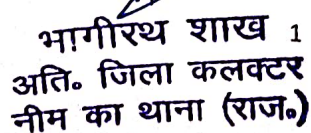 भागीरथ शाख 1
अति॰ जिला कलक्टर
नीम का थाना (राज॰)